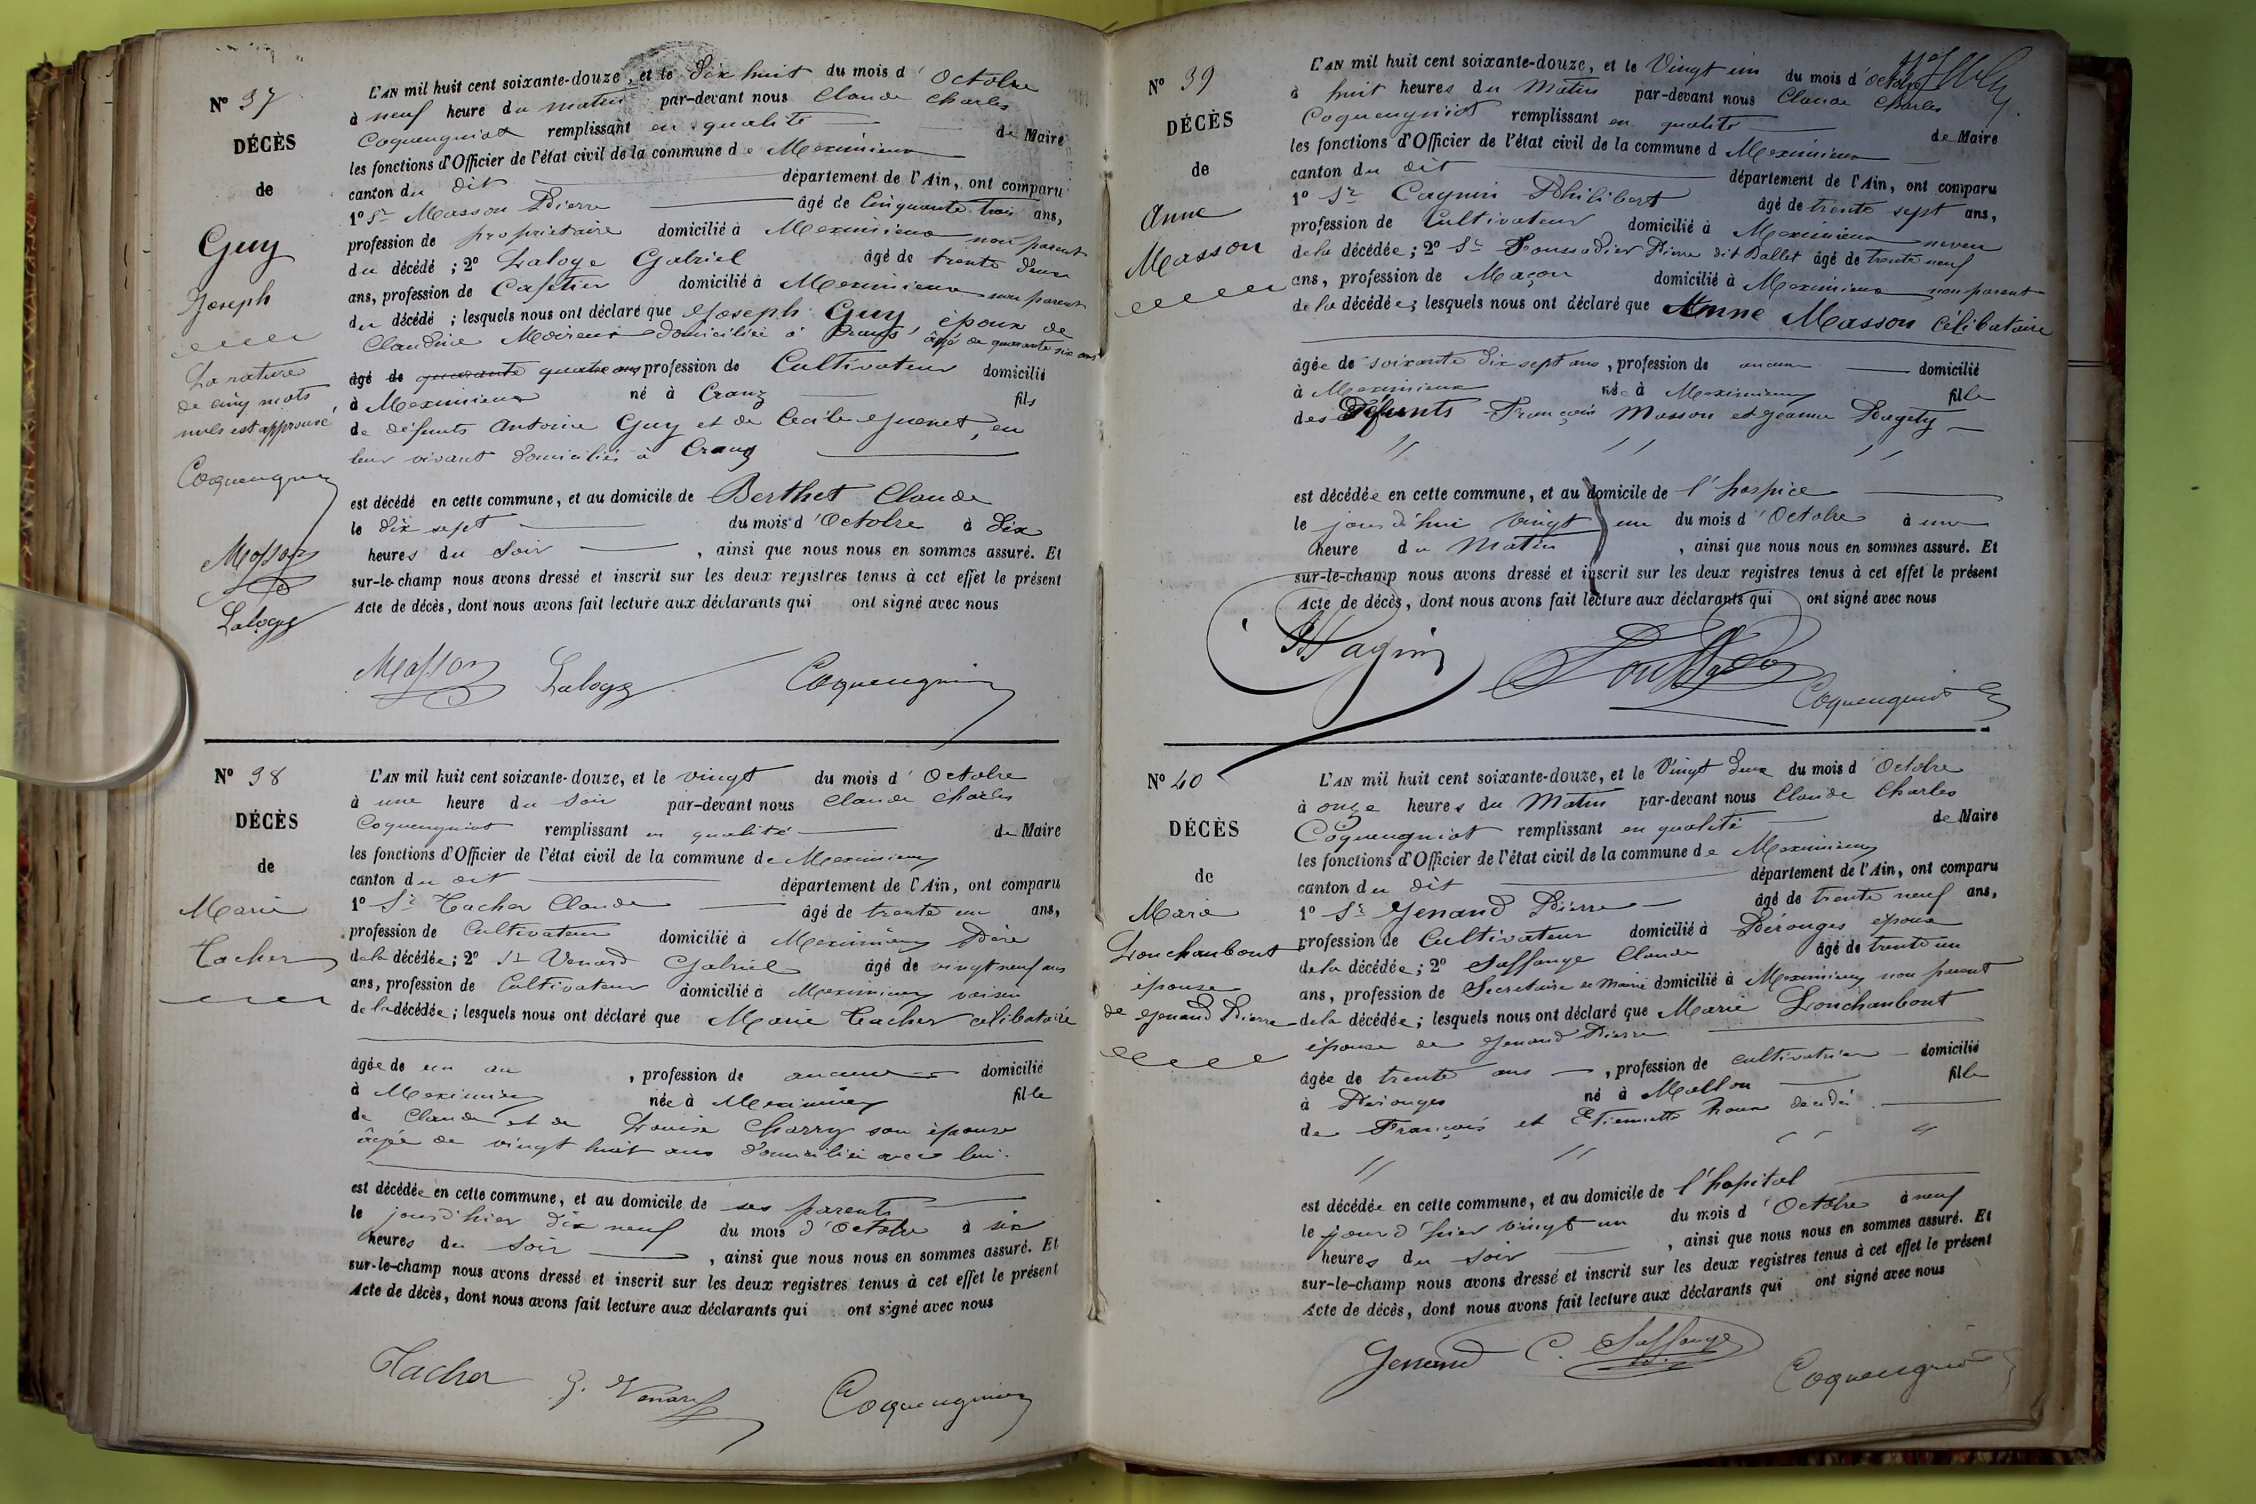 Nº 37
DÉCÈS
de
Guy
Joseph
La rature
de cinq mots
nuls est approuvé
Coquengniot
Masson
Laloge
L'AN mil huit cent soixante-douze, et le Dix huit du mois d'Octobre
à neuf heure du matin par-devant nous Claude Charles
Coquengniot remplissant en qualité de Maire
les fonctions d'Officier de l'état civil de la commune de Meximieux
canton du dit département de l'Ain, ont comparu
1º Sr Masson Pierre âgé de Cinquante trois ans,
profession de propriétaire domicilié à Meximieux non parent
du décédé ; 2º Laloge Gabriel âgé de trente deux
ans, profession de Cafetier domicilié à Meximieux non parent
du décédé ; lesquels nous ont déclaré que Joseph Guy, époux de
Claudine domiciliée à Crans, âgé de quarante six ans
âgé de quarante quatre ans profession de Cultivateur domicilié
à Meximieux né à Cranz fils
de défunts Antoine Guy et de Cécile Guenet, en
leur vivant domiciliés à Cranz
est décédé en cette commune, et au domicile de Berthet Claude
le Dix sept du mois d'Octobre à Dix
heures du Soir , ainsi que nous nous en sommes assuré. Et
sur-le-champ nous avons dressé et inscrit sur les deux registres tenus à cet effet le présent
Acte de décès, dont nous avons fait lecture aux déclarants qui ont signé avec nous
Masson Laloge Coquengniot
Nº 38
DÉCÈS
de
Marie
Tacher
L'AN mil huit cent soixante-douze, et le vingt du mois d'Octobre
à une heure du Soir par-devant nous Claude Charles
Coquengniot remplissant en qualité de Maire
les fonctions d'Officier de l'état civil de la commune de Meximieux
canton du dit département de l'Ain, ont comparu
1º Sr Tacher Claude âgé de trente un ans,
profession de Cultivateur domicilié à Meximieux Père
de la décédée ; 2º Sr Venard Gabriel âgé de vingt neuf ans
ans, profession de Cultivateur domicilié à Meximieux voisin
de la décédée ; lesquels nous ont déclaré que Marie Tacher célibataire
âgée de un an , profession de aucune domicilié
à Meximieux née à Meximieux fille
de Claude et de Louise Charry son épouse
âgée de vingt huit ans domiciliée avec lui.
est décédée en cette commune, et au domicile de ses parents
le jour d'hier dix neuf du mois d'Octobre à six
heures du Soir , ainsi que nous nous en sommes assuré. Et
sur-le-champ nous avons dressé et inscrit sur les deux registres tenus à cet effet le présent
Acte de décès, dont nous avons fait lecture aux déclarants qui ont signé avec nous
Tacher G. Venard Coquengniot
Nº 39
DÉCÈS
de
Anne
Masson
L'AN mil huit cent soixante-douze, et le Vingt un du mois d'Octobre
à huit heures du Matin par-devant nous Claude Charles
Coquengniot remplissant en qualité de Maire
les fonctions d'Officier de l'état civil de la commune d Meximieux
canton du dit département de l'Ain, ont comparu
1º Sr Cagnin Philibert âgé de trente sept ans,
profession de Cultivateur domicilié à Meximieux neveu
de la décédée ; 2º Sr Pierre dit Ballet âgé de trente neuf
ans, profession de Maçon domicilié à Meximieux non parent
de la décédée ; lesquels nous ont déclaré que Anne Masson Célibataire
âgée de soixante dix sept ans, profession de aucune domicilié
à Meximieux née à Meximieux fille
des Défunts François Masson et Jeanne
est décédée en cette commune, et au domicile de l'hospice
le jour d'hui Vingt un du mois d'Octobre à une
heure du Matin , ainsi que nous nous en sommes assuré. Et
sur-le-champ nous avons dressé et inscrit sur les deux registres tenus à cet effet le présent
Acte de décès, dont nous avons fait lecture aux déclarants qui ont signé avec nous
Coquengniot
Nº 40
DÉCÈS
de
Marie
Lonchanbout
épouse
de Genand Pierre
L'AN mil huit cent soixante-douze, et le Vingt deux du mois d'Octobre
à onze heures du Matin par-devant nous Claude Charles
Coquengniot remplissant en qualité de Maire
les fonctions d'Officier de l'état civil de la commune de Meximieux
canton du dit département de l'Ain, ont comparu
1º Sr Genand Pierre âgé de trente neuf ans,
profession de Cultivateur domicilié à Pérouges époux
de la décédée ; 2º Saffange Claude âgé de trente un
ans, profession de Secrétaire de Mairie domicilié à Meximieux non parent
de la décédée ; lesquels nous ont déclaré que Marie Lonchanbout
épouse de Genand Pierre
âgée de trente ans , profession de cultivatrice domicilié
à Pérouges né à Mollon fille
de François et Etiennette
est décédée en cette commune, et au domicile de l'hopital
le jour d'hier vingt un du mois d'Octobre à neuf
heures du Soir , ainsi que nous nous en sommes assuré. Et
sur-le-champ nous avons dressé et inscrit sur les deux registres tenus à cet effet le présent
Acte de décès, dont nous avons fait lecture aux déclarants qui ont signé avec nous
Genand C. Saffange Coquengniot